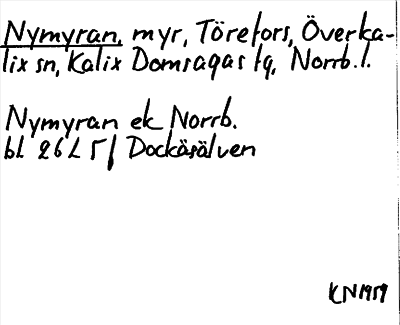 Nymyran, myr, Törefors, Överka-
lix sn, Kalix Domsagas tg, Norrb. l.
Nymyran ek Norrb.
bl 26L5f Dockäsälven
KN 1959